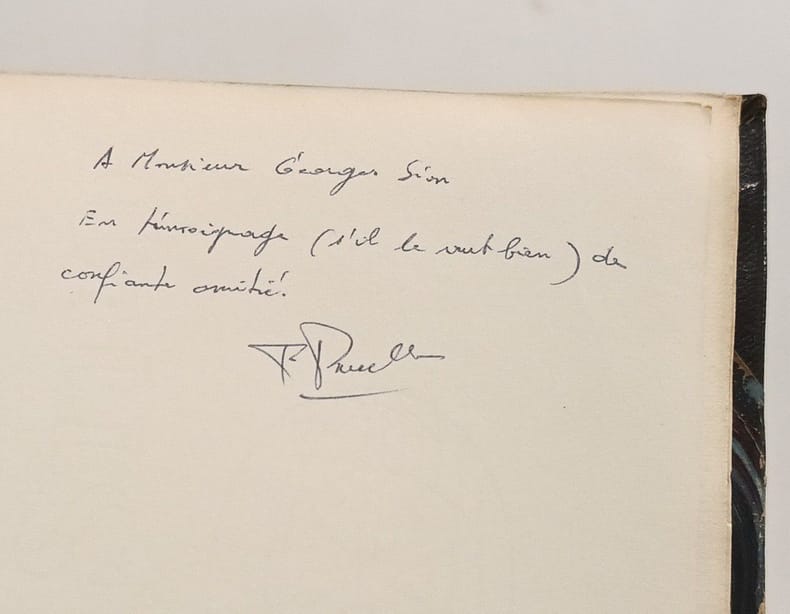 A Monsieur Georges Sion
En témoignage (s'il le veut bien) de
confiante amitié.